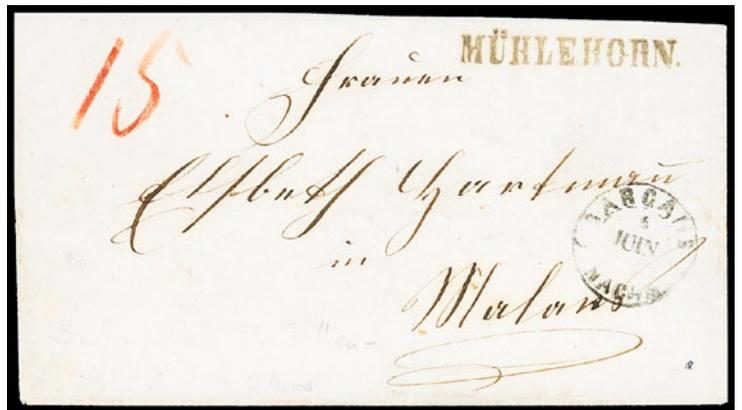 15
MÜHLEHORN.
Frauen
Elsbeth Hartmañ
in
Malans
4
JUIN
NACHM